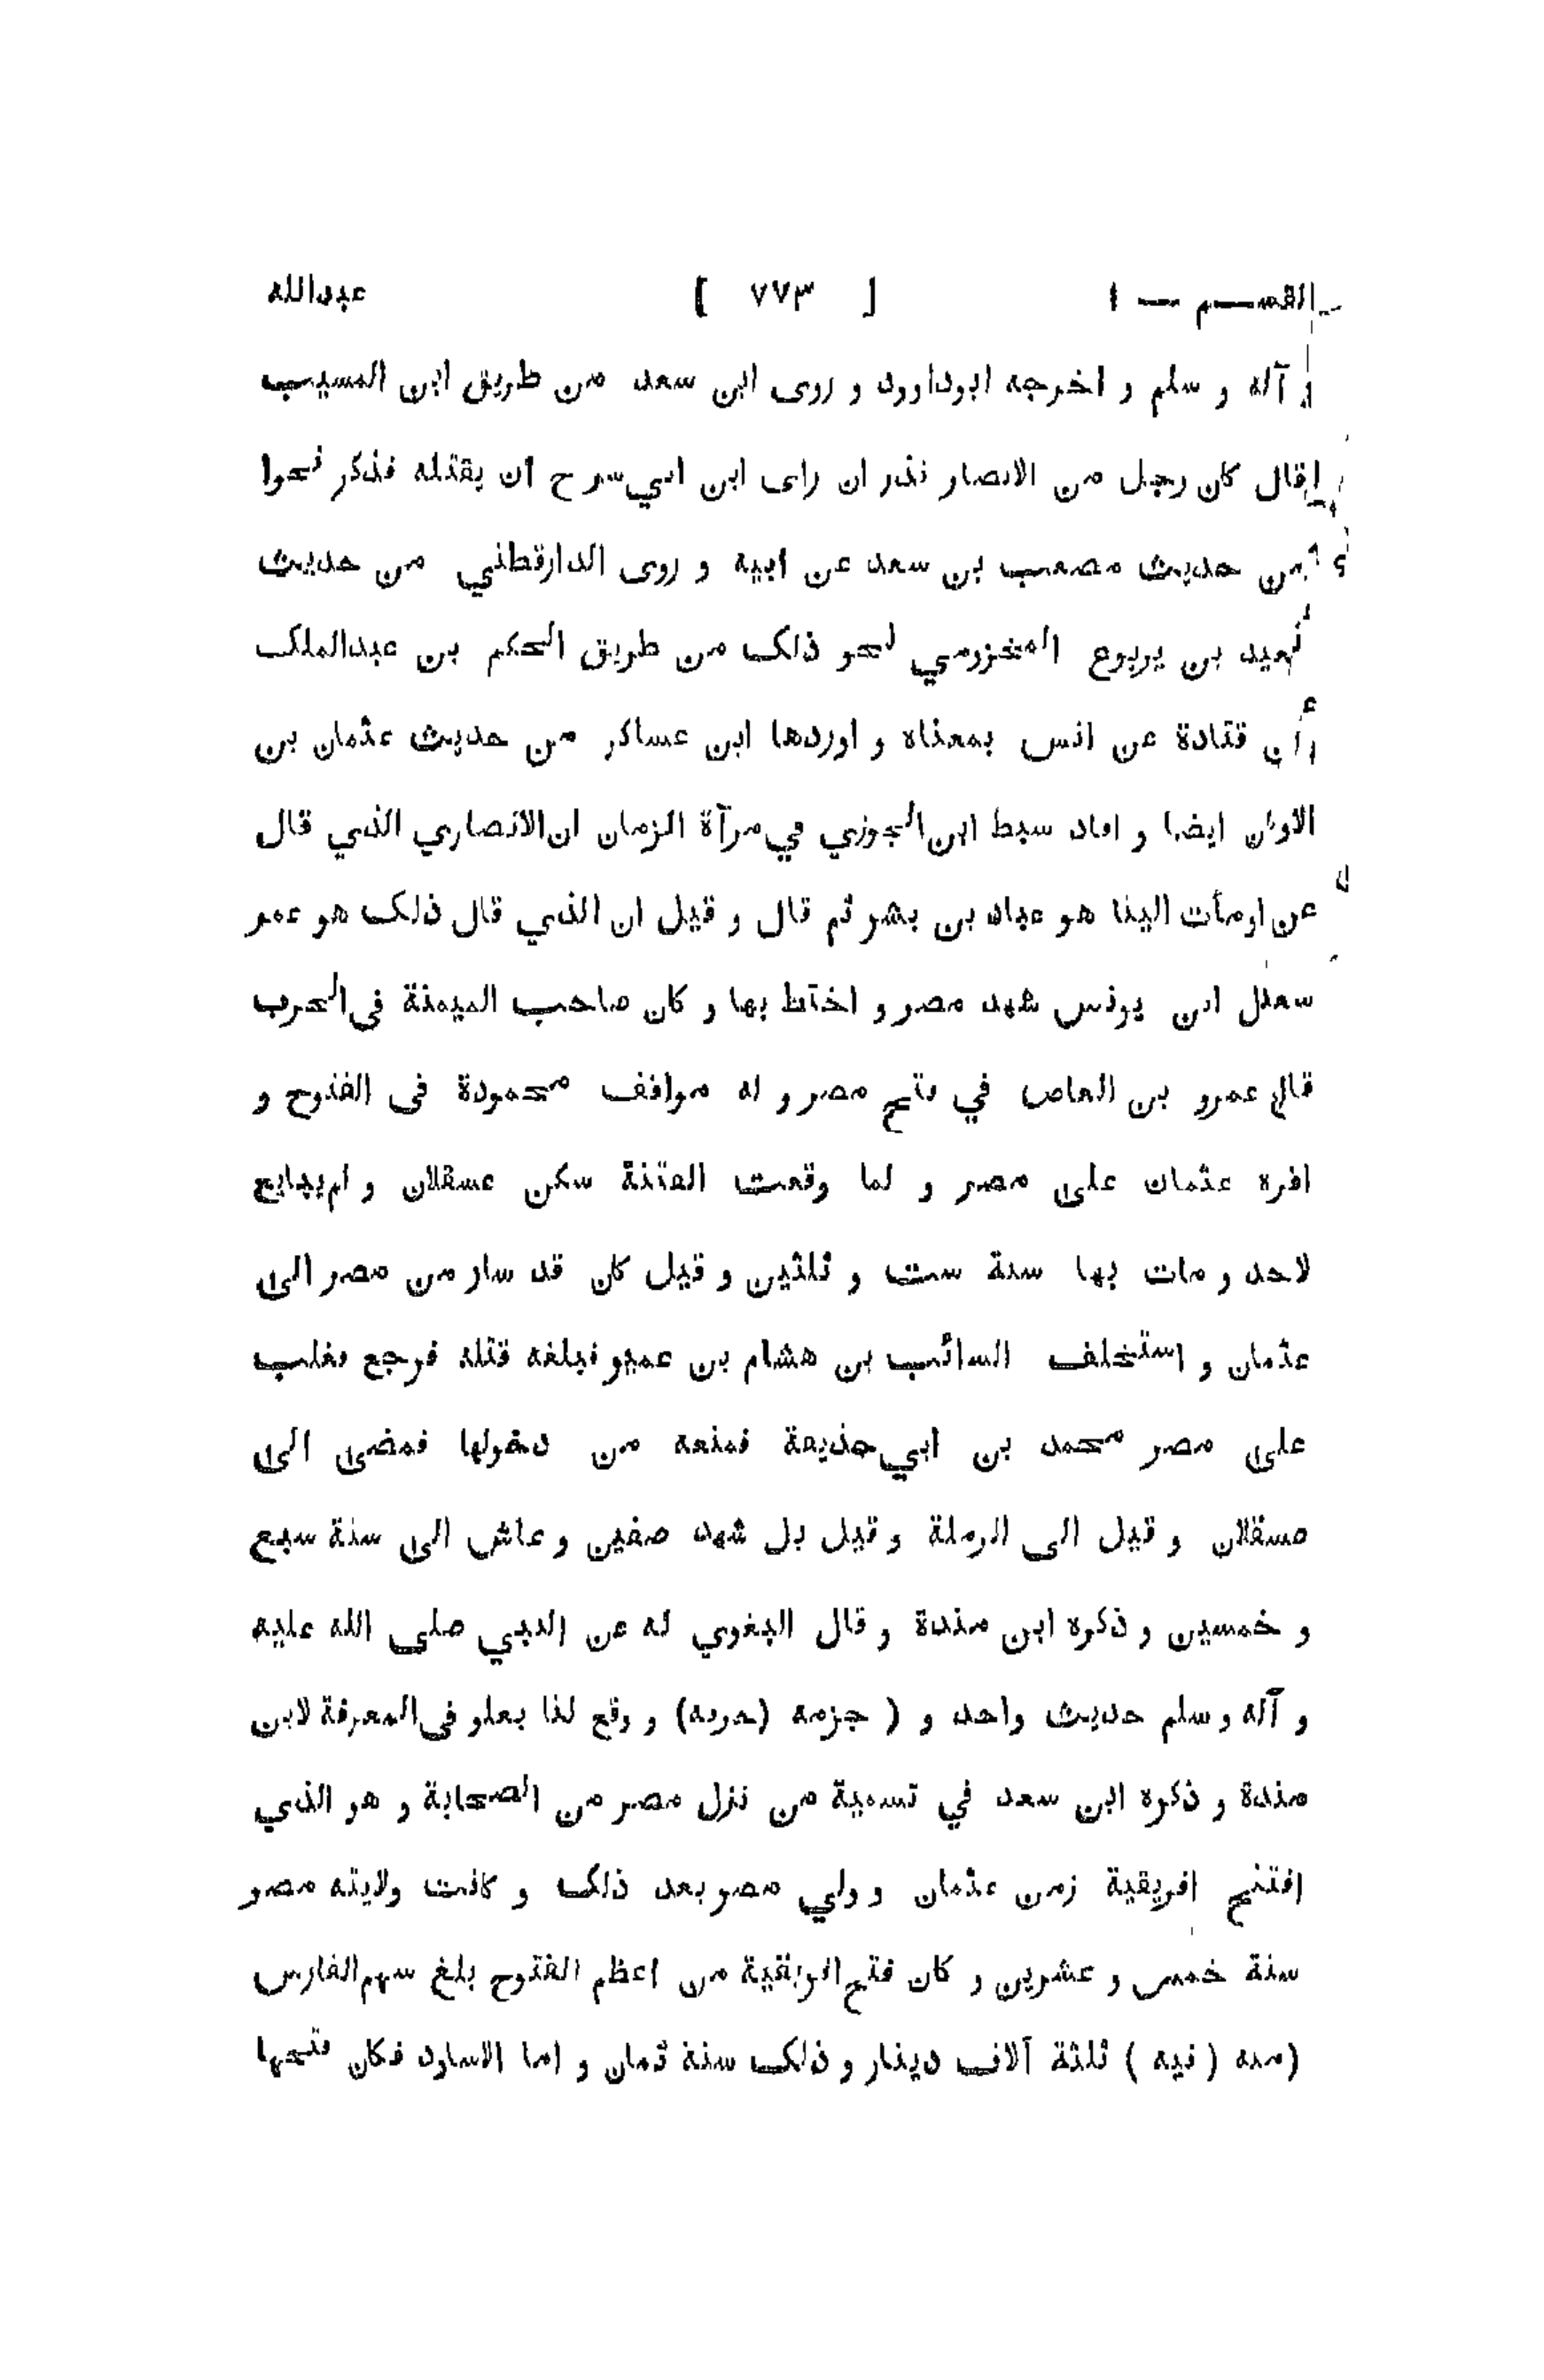 القسم — ١ [ ٧٧٣ ] عبدالله
و آله و سلم و اخرجه ابوداوود و روى ابن سعد من طريق ابن المسيب
قال كان رجل من الانصار نذر ان راى ابن ابي سرح ان يقتله فذكر نحوا
من حديث مصعب بن سعد عن ابيه و روى الدارقطني من حديث
بن يربوع المخزومي نحو ذلك من طريق الحكم بن عبدالملك
قتادة عن انس بمعناه و اوردها ابن عساكر من حديث عثمان بن
ايضا و افاد سبط ابن الجوزي في مرآة الزمان ان الانصاري الذي قال
اومأت الينا هو عباد بن بشر ثم قال و قيل ان الذي قال ذلك هو عمر
ابن يونس شهد مصر و اختط بها و كان صاحب الميمنة فى الحرب
عمرو بن العاص في فتح مصر و له مواقف محمودة فى الفتوح و
امره عثمان على مصر و لما وقعت الفتنة سكن عسقلان و لم يبايع
لاحد و مات بها سنة ست و ثلثين و قيل كان قد سار من مصر الى
عثمان و استخلف السائب بن هشام بن عمير فبلغه قتله فرجع فغلب
على مصر محمد بن ابي حذيفة فمنعه من دخولها فمضى الى
عسقلان و قيل الى الرملة و قيل بل شهد صفين و عاش الى سنة سبع
و خمسين و ذكره ابن مندة و قال البغوي له عن النبي صلى الله عليه
و آله و سلم حديث واحد و ( جزمه (حربه) و وقع لنا بعلو فى المعرفة لابن
مندة و ذكره ابن سعد في تسمية من نزل مصر من الصحابة و هو الذي
افتتح افريقية زمن عثمان و ولي مصر بعد ذلك و كانت ولايته مصر
سنة خمس و عشرين و كان فتح افريقية من اعظم الفتوح بلغ سهم الفارس
(منه ( فيه ) ثلثة آلاف دينار و ذلك سنة ثمان و اما الاساود فكان فتحها